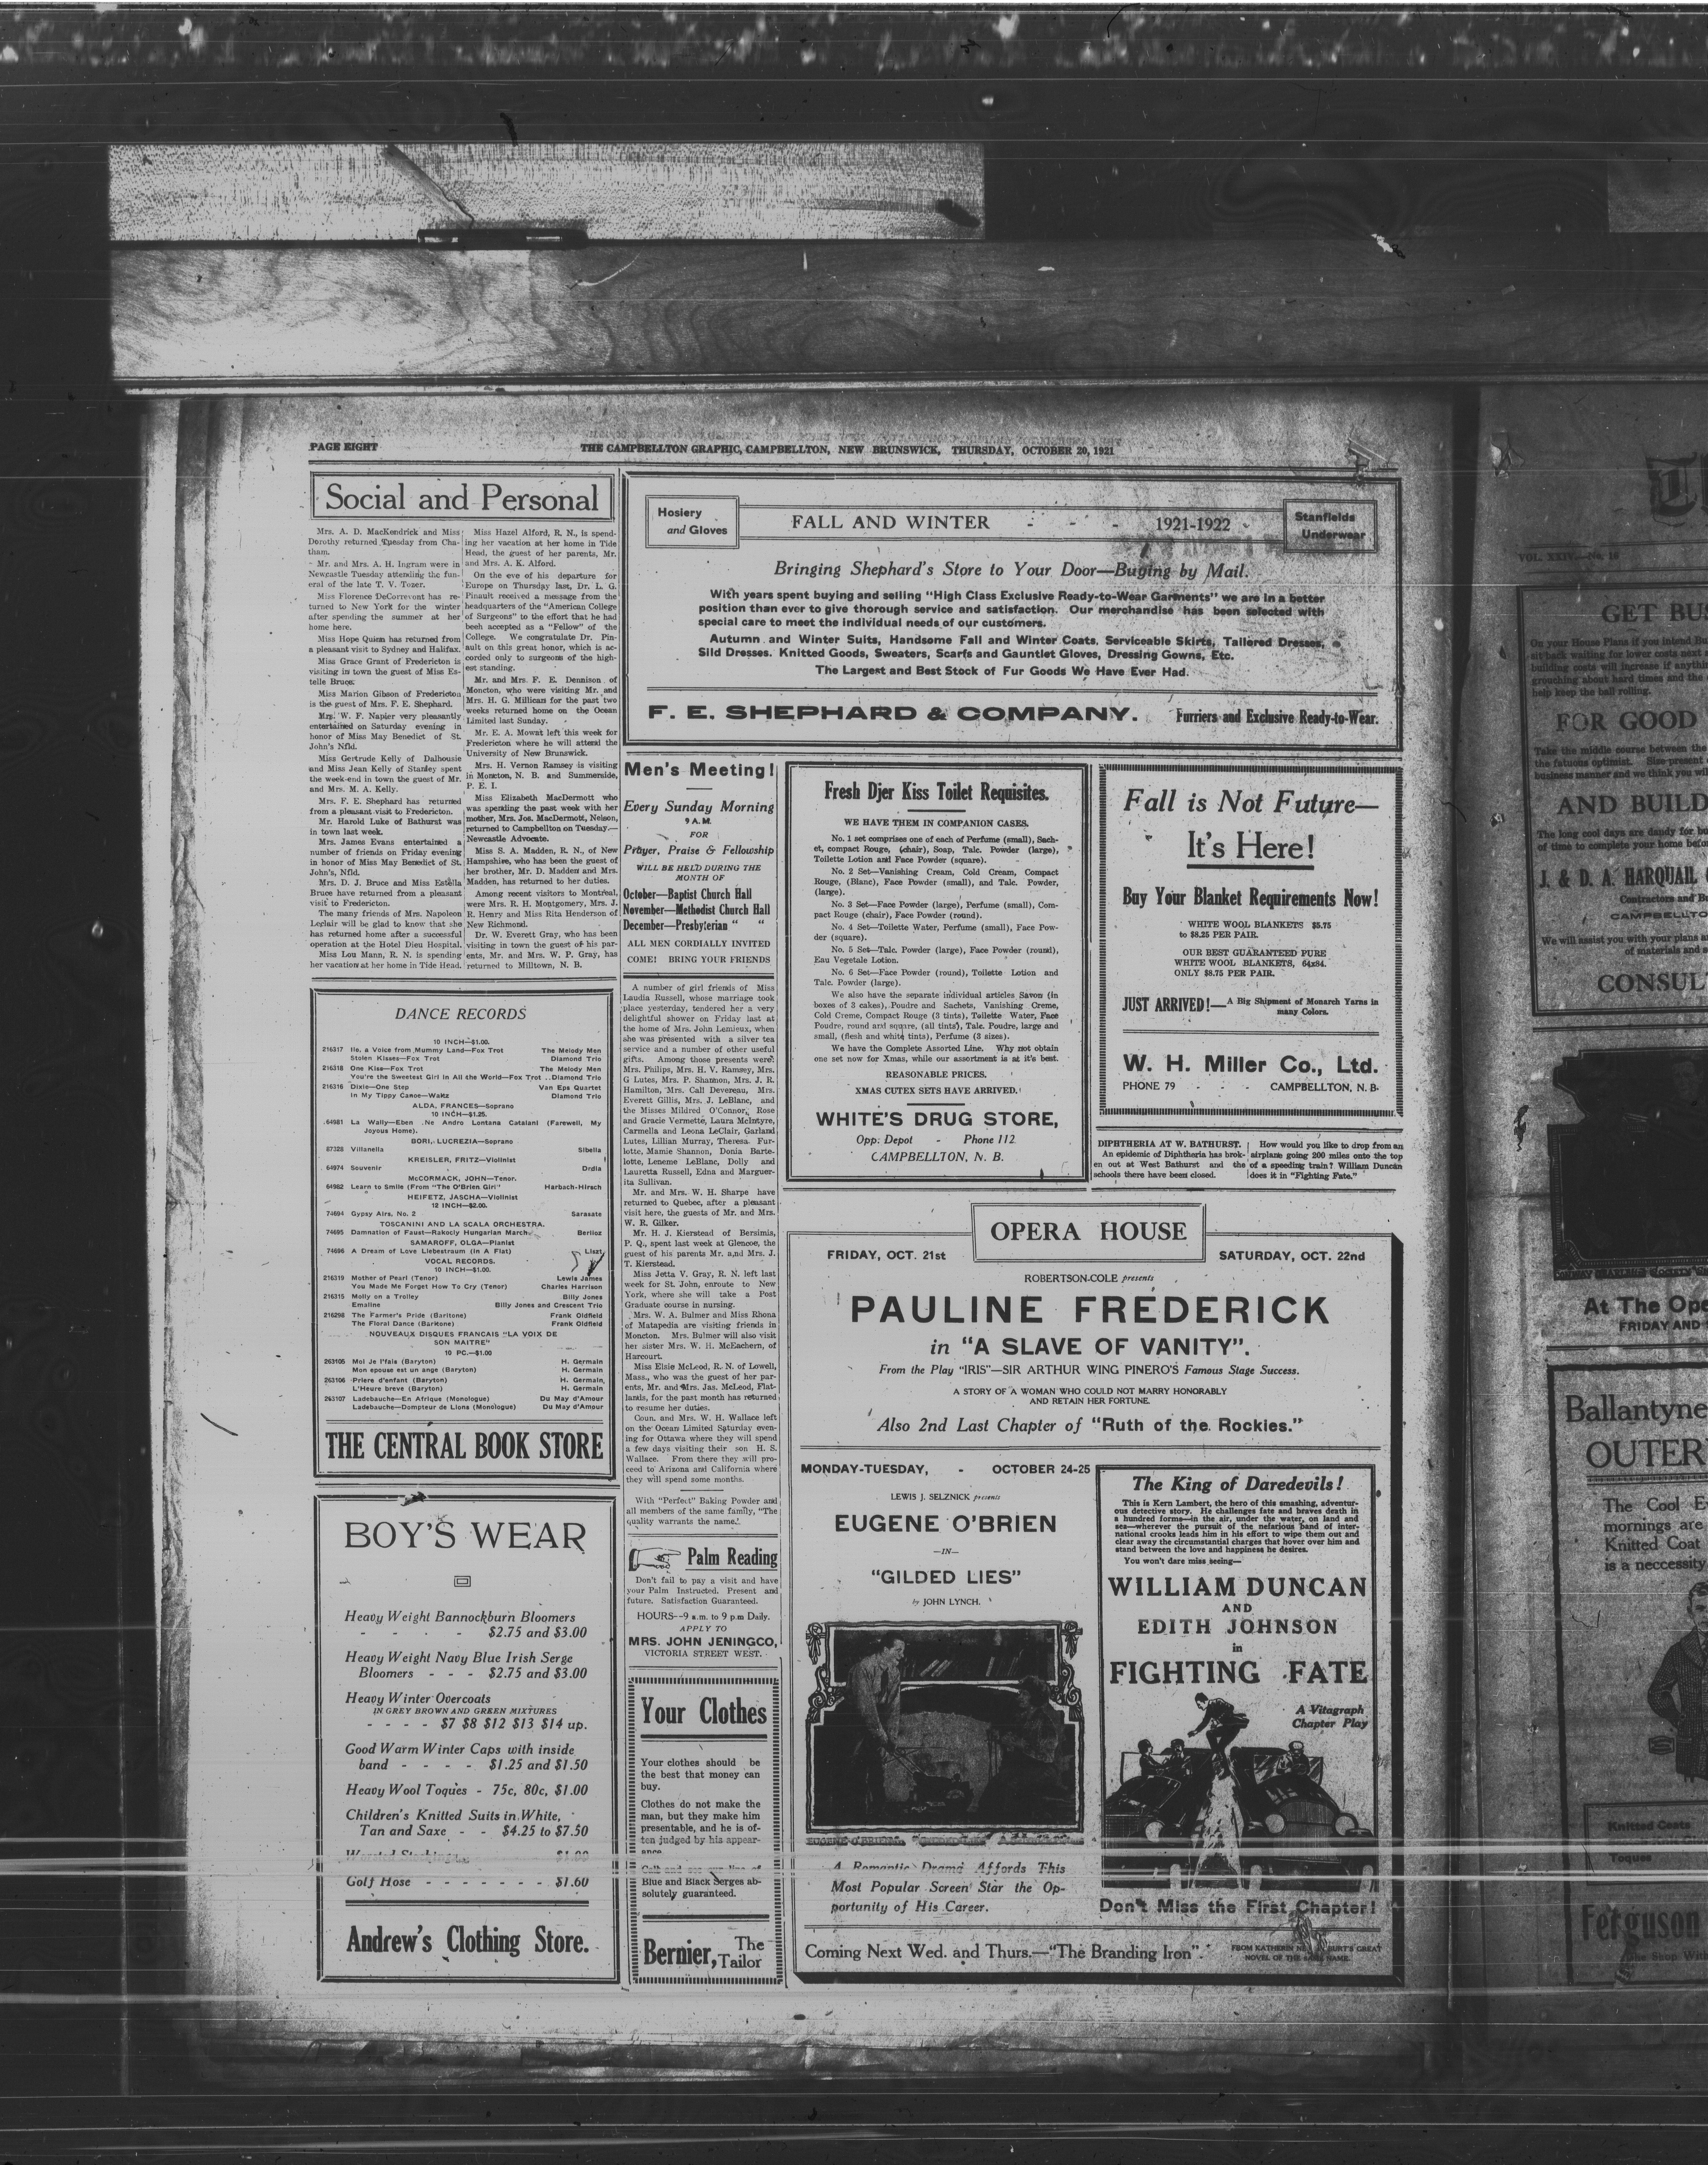 PAGE EIGHT
THE CAMPBELLTON GRAPHIC, CAMPBELLTON, NEW BRUNSWICK, THURSDAY, OCTOBER 20, 1921
Social and Personal
Mrs. A. D. MacKendrick and Miss
Dorothy returned Tuesday from Cha-
tham.
Mr. and Mrs. A. H. Ingram were in
Newcastle Tuesday attending the fun-
eral of the late T. V. Tozer.
Miss Florence DeCorrevont has re-
turned to New York for the winter
after spending the summer at her
home here.
Miss Hope Quinn has returned from
a pleasant visit to Sydney and Halifax.
Miss Grace Grant of Fredericton is
visiting in town the guest of Miss Es-
telle Bruce.
Miss Marion Gibson of Fredericton
is the guest of Mrs. F. E. Shephard.
Mrs. W. F. Napier very pleasantly
entertained on Saturday evening in
honor of Miss May Benedict of St.
John's Nfld.
Miss Gertrude Kelly of Dalhousie
and Miss Jean Kelly of Stanley spent
the week-end in town the guest of Mr.
and Mrs. M. A. Kelly.
Mrs. F. E. Shephard has returned
from a pleasant visit to Fredericton.
Mr. Harold Luke of Bathurst was
in town last week.
Mrs. James Evans entertained a
number of friends on Friday evening
in honor of Miss May Benedict of St.
John's, Nfld.
Mrs. D. J. Bruce and Miss Estella
Bruce have returned from a pleasant
visit to Fredericton.
The many friends of Mrs. Napoleon
Leclair will be glad to know that she
has returned home after a successful
operation at the Hotel Dieu Hospital.
Miss Lou Mann, R. N. is spending
her vacation at her home in Tide Head.
Miss Hazel Alford, R. N., is spend-
ing her vacation at her home in Tide
Head, the guest of her parents, Mr.
and Mrs. A. K. Alford.
On the eve of his departure for
Europe on Thursday last, Dr. L. G.
Pinault received a message from the
headquarters of the "American College
of Surgeons" to the effect that he had
been accepted as a "Fellow" of the
College. We congratulate Dr. Pin-
ault on this great honor, which is ac-
corded only to surgeons of the high-
est standing.
Mr. and Mrs. F. E. Dennison of
Moncton, who were visiting Mr. and
Mrs. H. G. Millican for the past two
weeks returned home on the Ocean
Limited last Sunday.
Mr. E. A. Mowat left this week for
Fredericton where he will attend the
University of New Brunswick.
Mrs. H. Vernon Ramsey is visiting
in Moncton, N. B. and Summerside,
P. E. I.
Miss Elizabeth MacDermott who
was spending the past week with her
mother, Mrs. Jos. MacDermott, Nelson,
returned to Campbellton on Tuesday.—
Newcastle Advocate.
Miss S. A. Madden, R. N., of New
Hampshire, who has been the guest of
her brother, Mr. D. Madden and Mrs.
Madden, has returned to her duties.
Among recent visitors to Montreal,
were Mrs. R. H. Montgomery, Mrs. J.
R. Henry and Miss Rita Henderson of
New Richmond.
Dr. W. Everett Gray, who has been
visiting in town the guest of his par-
ents, Mr. and Mrs. W. P. Gray, has
returned to Milltown, N. B.
DANCE RECORDS
10 INCH—$1.00.
216317 Ile, a Voice from Mummy Land—Fox Trot The Melody Men
Stolen Kisses—Fox Trot Diamond Trio
216318 One Kiss—Fox Trot The Melody Men
You're the Sweetest Girl in All the World—Fox Trot ..Diamond Trio
216316 Dixie—One Step Van Eps Quartet
In My Tippy Canoe—Waltz Diamond Trio
ALDA, FRANCES—Soprano
10 INCH—$1.25.
64981 La Wally—Eben .Ne Andro Lontana Catalani (Farewell, My
Joyous Home).
BORI, LUCREZIA—Soprano
87328 Villanella Sibella
KREISLER, FRITZ—Violinist
64974 Souvenir Drdla
McCORMACK, JOHN—Tenor.
64982 Learn to Smile (From "The O'Brien Girl" Harbach-Hirsch
HEIFETZ, JASCHA—Violinist
12 INCH—$2.00.
74694 Gypsy Airs, No. 2 Sarasate
TOSCANINI AND LA SCALA ORCHESTRA.
74695 Damnation of Faust—Rakocly Hungarian March Berlioz
SAMAROFF, OLGA—Pianist
74696 A Dream of Love Liebestraum (In A Flat) Liszt
VOCAL RECORDS.
10 INCH—$1.00.
216319 Mother of Pearl (Tenor) Lewis James
You Made Me Forget How To Cry (Tenor) Charles Harrison
216315 Molly on a Trolley Billy Jones
Emaline Billy Jones and Crescent Trio
216298 The Farmer's Pride (Baritone) Frank Oldfield
The Floral Dance (Baritone) Frank Oldfield
NOUVEAUX DISQUES FRANCAIS "LA VOIX DE
SON MAITRE"
10 PC.—$1.00
263105 Moi Je l'fais (Baryton) H. Germain
Mon epouse est un ange (Baryton) H. Germain
263106 Priere d'enfant (Baryton) H. Germain,
L'Heure breve (Baryton) H. Germain
263107 Ladebauche—En Afrique (Monologue) Du May d'Amour
Ladebauche—Dompteur de Lions (Monologue) Du May d'Amour
THE CENTRAL BOOK STORE
BOY'S WEAR
Heavy Weight Bannockburn Bloomers
- - - - $2.75 and $3.00
Heavy Weight Navy Blue Irish Serge
Bloomers - - - $2.75 and $3.00
Heavy Winter Overcoats
IN GREY BROWN AND GREEN MIXTURES
- - - - $7 $8 $12 $13 $14 up.
Good Warm Winter Caps with inside
band - - - - $1.25 and $1.50
Heavy Wool Toques - 75c, 80c, $1.00
Children's Knitted Suits in White,
Tan and Saxe - - $4.25 to $7.50
Worsted Stockings $1.00
Golf Hose - - - - - - - $1.60
Andrew's Clothing Store.
Hosiery
and Gloves
FALL AND WINTER - - - 1921-1922
Stanfields
Underwear
Bringing Shephard's Store to Your Door—Buying by Mail.
With years spent buying and selling "High Class Exclusive Ready-to-Wear Garments" we are in a better
position than ever to give thorough service and satisfaction. Our merchandise has been selected with
special care to meet the individual needs of our customers.
Autumn and Winter Suits, Handsome Fall and Winter Coats, Serviceable Skirts, Tailored Dresses,
Sild Dresses. Knitted Goods, Sweaters, Scarfs and Gauntlet Gloves, Dressing Gowns, Etc.
The Largest and Best Stock of Fur Goods We Have Ever Had.
F. E. SHEPHARD & COMPANY. Furriers and Exclusive Ready-to-Wear.
Men's Meeting!
Every Sunday Morning
9 A.M.
FOR
Prayer, Praise & Fellowship
WILL BE HELD DURING THE
MONTH OF
October—Baptist Church Hall
November—Methodist Church Hall
December—Presbyterian " "
ALL MEN CORDIALLY INVITED
COME! BRING YOUR FRIENDS
A number of girl friends of Miss
Laudia Russell, whose marriage took
place yesterday, tendered her a very
delightful shower on Friday last at
the home of Mrs. John Lemieux, when
she was presented with a silver tea
service and a number of other useful
gifts. Among those presents were:
Mrs. Philips, Mrs. H. V. Ramsey, Mrs.
G Lutes, Mrs. P. Shannon, Mrs. J. R.
Hamilton, Mrs. Call Devereau, Mrs.
Everett Gillis, Mrs. J. LeBlanc, and
the Misses Mildred O'Connor, Rose
and Gracie Vermette, Laura McIntyre,
Carmella and Leona LeClair, Garland
Lutes, Lillian Murray, Theresa Fur-
lotte, Mamie Shannon, Donia Barte-
lotte, Leneme LeBlanc, Dolly and
Lauretta Russell, Edna and Marguer-
ita Sullivan.
Mr. and Mrs. W. H. Sharpe have
returned to Quebec, after a pleasant
visit here, the guests of Mr. and Mrs.
W. R. Gilker.
Mr. H. J. Kierstead of Bersimis,
P. Q., spent last week at Glencoe, the
guest of his parents Mr. and Mrs. J.
T. Kierstead.
Miss Jetta V. Gray, R. N. left last
week for St. John, enroute to New
York, where she will take a Post
Graduate course in nursing.
Mrs. W. A. Bulmer and Miss Rhona
of Matapedia are visiting friends in
Moncton. Mrs. Bulmer will also visit
her sister Mrs. W. H. McEachern, of
Harcourt.
Miss Elsie McLeod, R. N. of Lowell,
Mass., who was the guest of her par-
ents, Mr. and Mrs. Jas. McLeod, Flat-
lands, for the past month has returned
to resume her duties.
Coun. and Mrs. W. H. Wallace left
on the Ocean Limited Saturday even-
ing for Ottawa where they will spend
a few days visiting their son H. S.
Wallace. From there they will pro-
ceed to Arizona and California where
they will spend some months.
With "Perfect" Baking Powder and
all members of the same family, "The
quality warrants the name."
Palm Reading
Don't fail to pay a visit and have
your Palm Instructed. Present and
future. Satisfaction Guaranteed.
HOURS--9 a.m. to 9 p.m Daily.
APPLY TO
MRS. JOHN JENINGCO,
VICTORIA STREET WEST.
Your Clothes
Your clothes should be
the best that money can
buy.
Clothes do not make the
man, but they make him
presentable, and he is of-
ten judged by his appear-
ance.
Call and see our line of
Blue and Black Serges ab-
solutely guaranteed.
Bernier, The
Tailor
Fresh Djer Kiss Toilet Requisites.
WE HAVE THEM IN COMPANION CASES.
No. 1 set comprises one of each of Perfume (small), Sach-
et, compact Rouge, (chair), Soap, Talc. Powder (large),
Toilette Lotion and Face Powder (square).
No. 2 Set—Vanishing Cream, Cold Cream, Compact
Rouge, (Blanc), Face Powder (small), and Talc. Powder,
(large).
No. 3 Set—Face Powder (large), Perfume (small), Com-
pact Rouge (chair), Face Powder (round).
No. 4 Set—Toilette Water, Perfume (small), Face Pow-
der (square).
No. 5 Set—Talc. Powder (large), Face Powder (round),
Eau Vegetale Lotion.
No. 6 Set—Face Powder (round), Toilette Lotion and
Talc. Powder (large).
We also have the separate individual articles Savon (in
boxes of 3 cakes), Poudre and Sachets, Vanishing Creme,
Cold Creme, Compact Rouge (3 tints), Toilette Water, Face
Poudre, round and square, (all tints), Talc. Poudre, large and
small, (flesh and white tints), Perfume (3 sizes).
We have the Complete Assorted Line. Why not obtain
one set now for Xmas, while our assortment is at it's best.
REASONABLE PRICES.
XMAS CUTEX SETS HAVE ARRIVED.
WHITE'S DRUG STORE,
Opp. Depot - Phone 112
CAMPBELLTON, N. B.
Fall is Not Future—
It's Here!
Buy Your Blanket Requirements Now!
WHITE WOOL BLANKETS $5.75
to $8.25 PER PAIR.
OUR BEST GUARANTEED PURE
WHITE WOOL BLANKETS, 64x84.
ONLY $8.75 PER PAIR.
JUST ARRIVED!—A Big Shipment of Monarch Yarns in
many Colors.
W. H. Miller Co., Ltd.
PHONE 79 - - - CAMPBELLTON, N. B.
DIPHTHERIA AT W. BATHURST.
An epidemic of Diphtheria has brok-
en out at West Bathurst and the
schools there have been closed.
How would you like to drop from an
airplane going 200 miles onto the top
of a speeding train? William Duncan
does it in "Fighting Fate."
OPERA HOUSE
FRIDAY, OCT. 21st SATURDAY, OCT. 22nd
ROBERTSON-COLE presents
PAULINE FREDERICK
in "A SLAVE OF VANITY".
From the Play "IRIS"—SIR ARTHUR WING PINERO'S Famous Stage Success.
A STORY OF A WOMAN WHO COULD NOT MARRY HONORABLY
AND RETAIN HER FORTUNE.
Also 2nd Last Chapter of "Ruth of the Rockies."
MONDAY-TUESDAY, - OCTOBER 24-25
LEWIS J. SELZNICK presents
EUGENE O'BRIEN
—IN—
"GILDED LIES"
by JOHN LYNCH.
EUGENE O'BRIEN
A Romantic Drama Affords This
Most Popular Screen Star the Op-
portunity of His Career.
The King of Daredevils!
This is Kern Lambert, the hero of this smashing, adventur-
ous detective story. He challenges fate and braves death in
a hundred forms—in the air, under the water, on land and
sea—wherever the pursuit of the nefarious band of inter-
national crooks leads him in his effort to wipe them out and
clear away the circumstantial charges that hover over him and
stand between the love and happiness he desires.
You won't dare miss seeing—
WILLIAM DUNCAN
AND
EDITH JOHNSON
in
FIGHTING FATE
A Vitagraph
Chapter Play
Don't Miss the First Chapter!
Coming Next Wed. and Thurs.—"The Branding Iron".
FROM KATHERIN BURT'S GREAT
NOVEL OF THE SAME NAME.
VOL. XXIV.—No. 16
GET BUS
On your House Plans if you intend Bu
sit back waiting for lower costs next
building costs will increase if anythin
grouching about hard times and the
help keep the ball rolling.
FOR GOOD
Take the middle course between the
the fatuous optimist. Size present
business manner and we think you wil
AND BUILD
The long cool days are dandy for bu
of time to complete your home befor
J. & D. A. HARQUAIL
Contractors and Bu
CAMPBELLTO
We will assist you with your plans a
of materials and s
CONSUL
At The Ope
FRIDAY AND
Ballantyne
OUTER
The Cool E
mornings are
Knitted Coat
is a neccessity
Knitted Coats
Toques
Ferguson
The Shop With